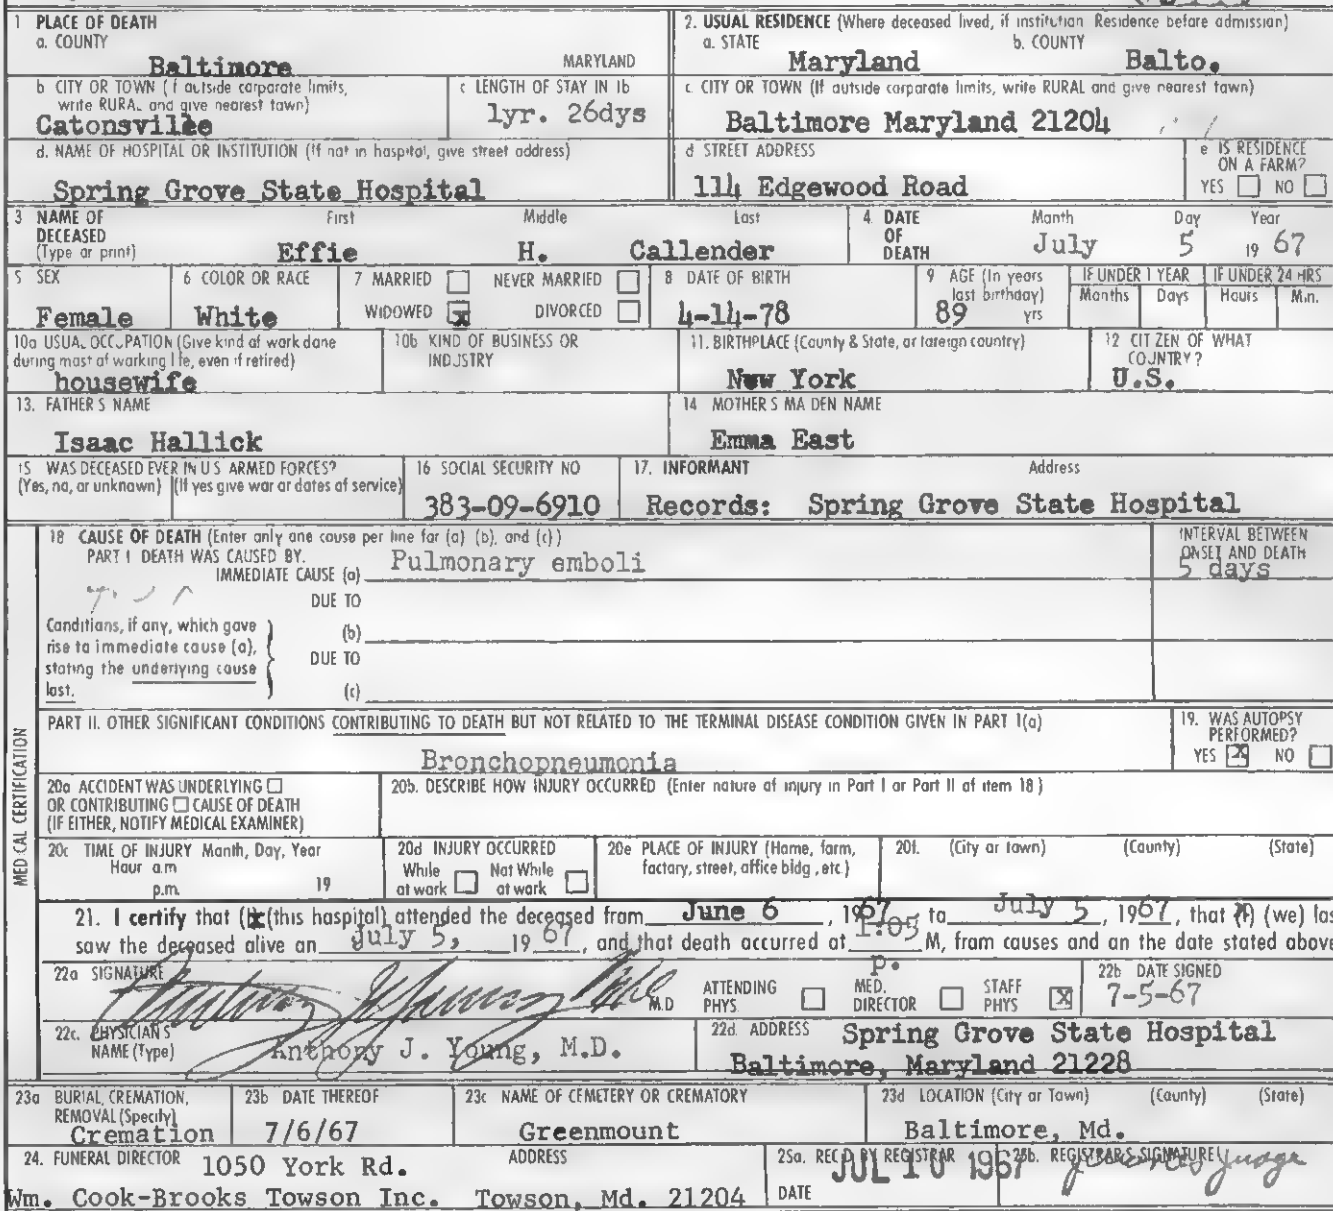 1 PLACE OF DEATH
a. COUNTY
Baltimore
MARYLAND
2. USUAL RESIDENCE (Where deceased lived, if institution Residence before admission)
a. STATE
Maryland
b. COUNTY
Balto.
b CITY OR TOWN (f outside corporate limits,
write RURAL and give nearest town)
Catonsville
c LENGTH OF STAY IN 1b
1yr. 26dys
c. CITY OR TOWN (If outside corporate limits, write RURAL and give nearest town)
Baltimore Maryland 21204
d. NAME OF HOSPITAL OR INSTITUTION (If not in hospital, give street address)
Spring Grove State Hospital
d STREET ADDRESS
114 Edgewood Road
e IS RESIDENCE
ON A FARM?
YES NO
3 NAME OF
DECEASED
(Type or print)
First Middle Last
Effie H. Callender
4. DATE
OF
DEATH
Month Day Year
July 5 19 67
5 SEX
Female
6 COLOR OR RACE
White
7 MARRIED NEVER MARRIED
WIDOWED x DIVORCED
8 DATE OF BIRTH
4-14-78
9 AGE (In years
last birthday)
89 yrs
IF UNDER 1 YEAR
Months Days
IF UNDER 24 HRS
Hours Min.
10a USUAL OCCUPATION (Give kind of work done
during most of working life, even if retired)
housewife
10b KIND OF BUSINESS OR
INDUSTRY
11. BIRTHPLACE (County & State, or foreign country)
New York
12 CITIZEN OF WHAT
COUNTRY?
U.S.
13. FATHER'S NAME
Isaac Hallick
14 MOTHER'S MAIDEN NAME
Emma East
15 WAS DECEASED EVER IN U S ARMED FORCES?
(Yes, no, or unknown) (If yes give war or dates of service)
16 SOCIAL SECURITY NO
383-09-6910
17. INFORMANT Address
Records: Spring Grove State Hospital
MEDICAL CERTIFICATION
18 CAUSE OF DEATH (Enter only one cause per line for (a) (b), and (c))
PART I DEATH WAS CAUSED BY.
IMMEDIATE CAUSE (a) Pulmonary emboli
INTERVAL BETWEEN
ONSET AND DEATH
5 days
DUE TO
Conditions, if any, which gave
rise to immediate cause (a),
stating the underlying cause
last.
(b)
DUE TO
(c)
PART II. OTHER SIGNIFICANT CONDITIONS CONTRIBUTING TO DEATH BUT NOT RELATED TO THE TERMINAL DISEASE CONDITION GIVEN IN PART I(a)
Bronchopneumonia
19. WAS AUTOPSY
PERFORMED?
YES X NO
20a ACCIDENT WAS UNDERLYING
OR CONTRIBUTING CAUSE OF DEATH
(IF EITHER, NOTIFY MEDICAL EXAMINER)
20b. DESCRIBE HOW INJURY OCCURRED (Enter nature of injury in Part I or Part II of item 18)
20c TIME OF INJURY Month, Day, Year
Hour a.m
p.m. 19
20d INJURY OCCURRED
While Not While
at work at work
20e PLACE OF INJURY (Home, farm,
factory, street, office bldg, etc.)
20f. (City or town) (County) (State)
21. I certify that (I) (this hospital) attended the deceased from June 6, 1967 to July 5, 1967, that (I) (we) las
saw the deceased alive on July 5, 19 67, and that death occurred at 1:05 M, from causes and on the date stated above
p.
22a SIGNATURE
M.D
ATTENDING
PHYS
MED.
DIRECTOR
STAFF
PHYS X
22b DATE SIGNED
7-5-67
22c. PHYSICIAN'S
NAME (Type)
Anthony J. Young, M.D.
22d. ADDRESS
Spring Grove State Hospital
Baltimore, Maryland 21228
23a BURIAL, CREMATION,
REMOVAL (Specify)
Cremation
23b DATE THEREOF
7/6/67
23c NAME OF CEMETERY OR CREMATORY
Greenmount
23d LOCATION (City or Town) (County) (State)
Baltimore, Md.
24. FUNERAL DIRECTOR ADDRESS
1050 York Rd.
Wm. Cook-Brooks Towson Inc. Towson, Md. 21204
25a. REC'D BY REGISTRAR
DATE
JUL 10 1967
25b. REGISTRAR'S SIGNATURE